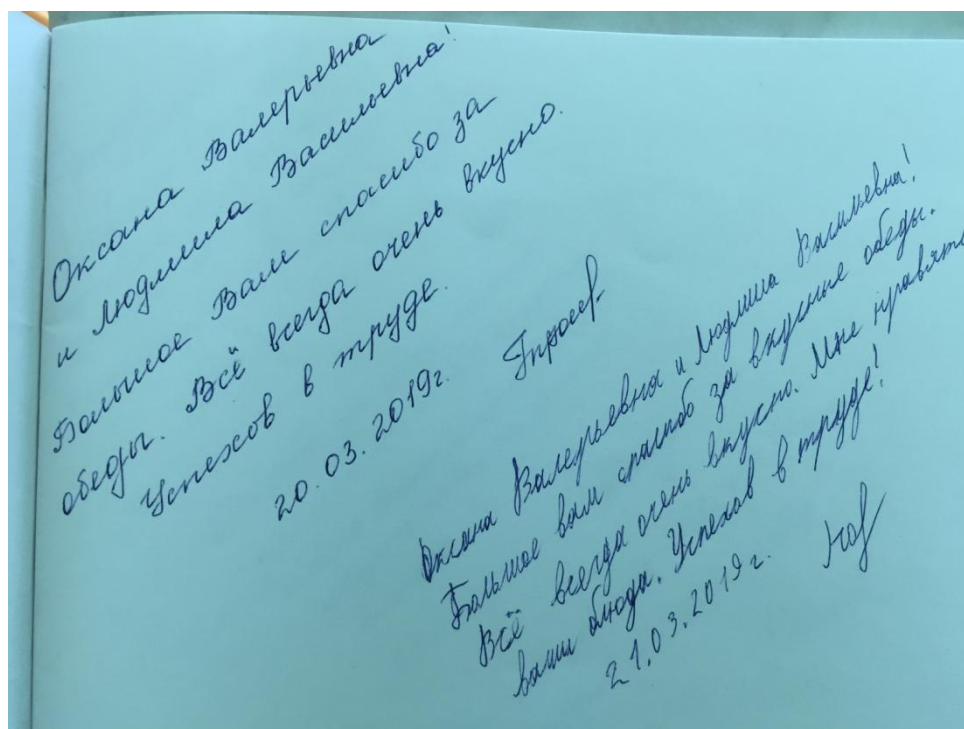 Оксана Валерьевна
и Людмила Васильевна!
Большое Вам спасибо за
обеды. Всё всегда очень вкусно.
Успехов в труде.
20.03.2019г.
Оксана Валерьевна и Людмила Васильевна!
Большое вам спасибо за вкусные обеды.
Всё всегда очень вкусно. Мне нравятс
ваши блюда. Успехов в труде!
21.03.2019г.